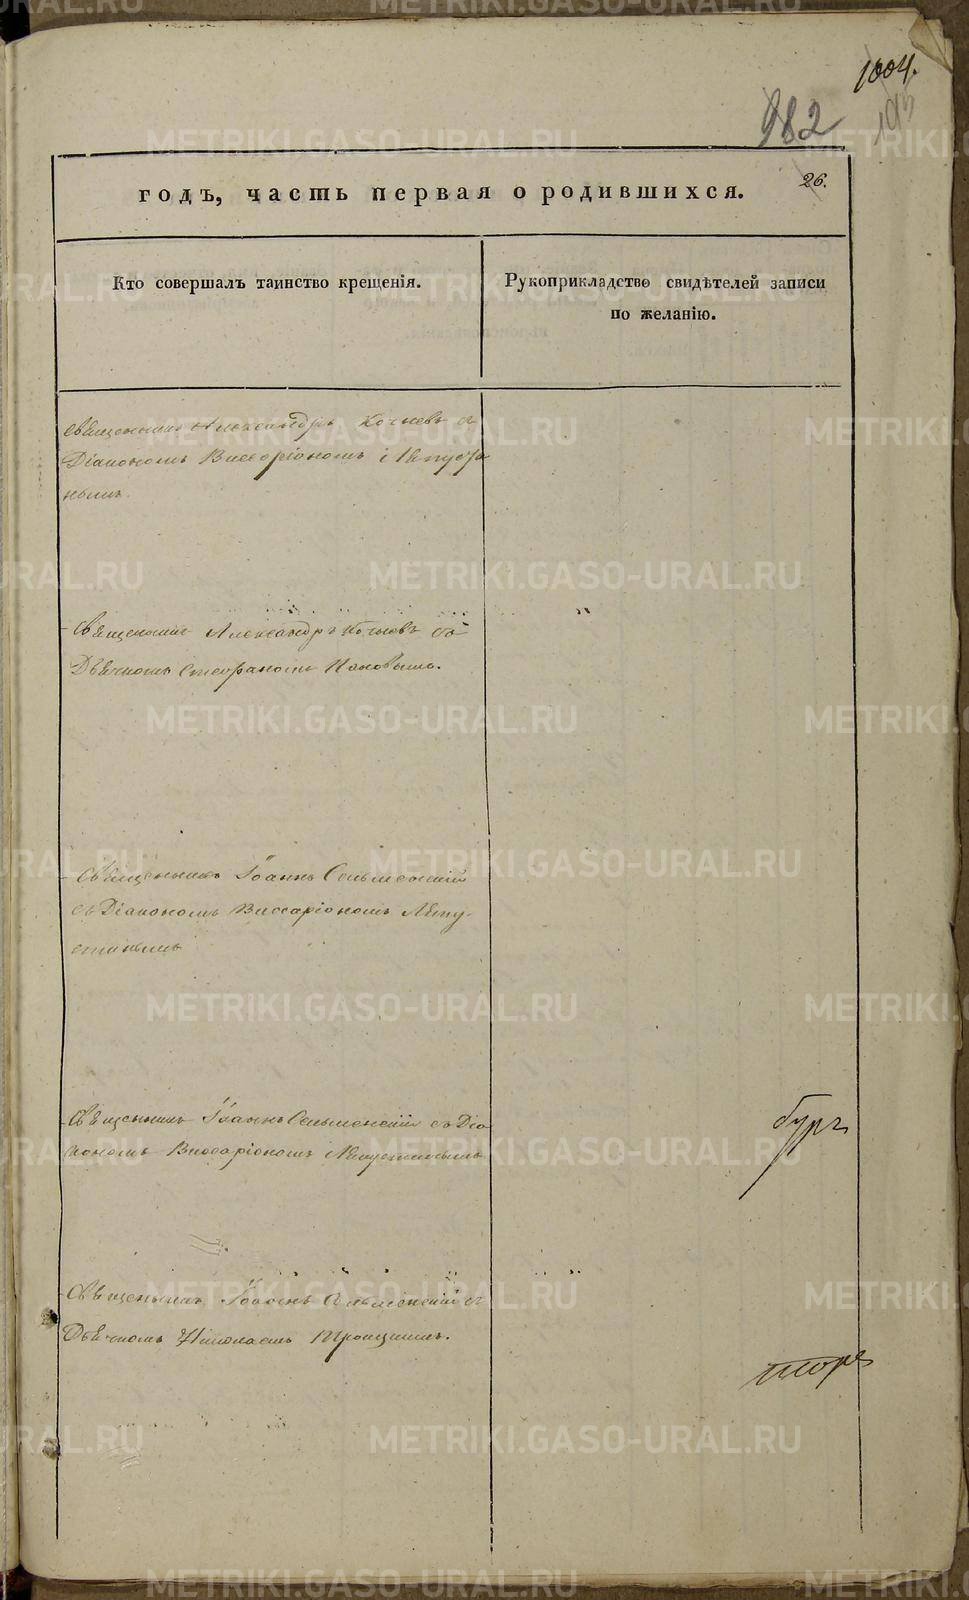 1004.
982
193
26.
годъ, часть первая о родившихся.
Кто совершалъ таинство крещенія.
Рукоприкладство свидѣтелей записи
по желанію.
священникъ Александръ Кочневъ съ
Діакономъ Виссаріономъ
нымъ.
Священникъ Александръ Кочневъ съ
Дьячкомъ Стефаномъ Поповымъ.
Священникъ Іоаннъ Сельменскій
съ Діакономъ Виссаріономъ Лепу-
стинымъ
Священникъ Іоаннъ Сельменскій съ Діа
кономъ Виссаріономъ Лепустинымъ
Священникъ Іоаннъ Сельменскій съ
Дьячкомъ Николаемъ Троицкимъ.
METRIKI.GASO-URAL.RU